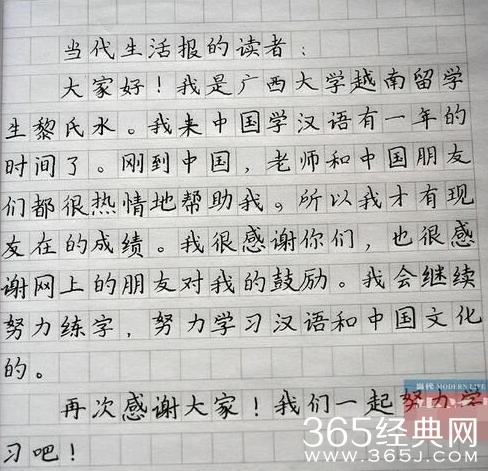 当代生活报的读者：
大家好！我是广西大学越南留学
生黎氏水。我来中国学汉语有一年的
时间了。刚到中国，老师和中国朋友
们都很热情地帮助我。所以我才有现
友在的成绩。我很感谢你们，也很感
谢网上的朋友对我的鼓励。我会继续
努力练字，努力学习汉语和中国文化
的。
再次感谢大家！我们一起努力学
习吧！
当代 MODERN LIFE
365经典网
WWW.365J.COM